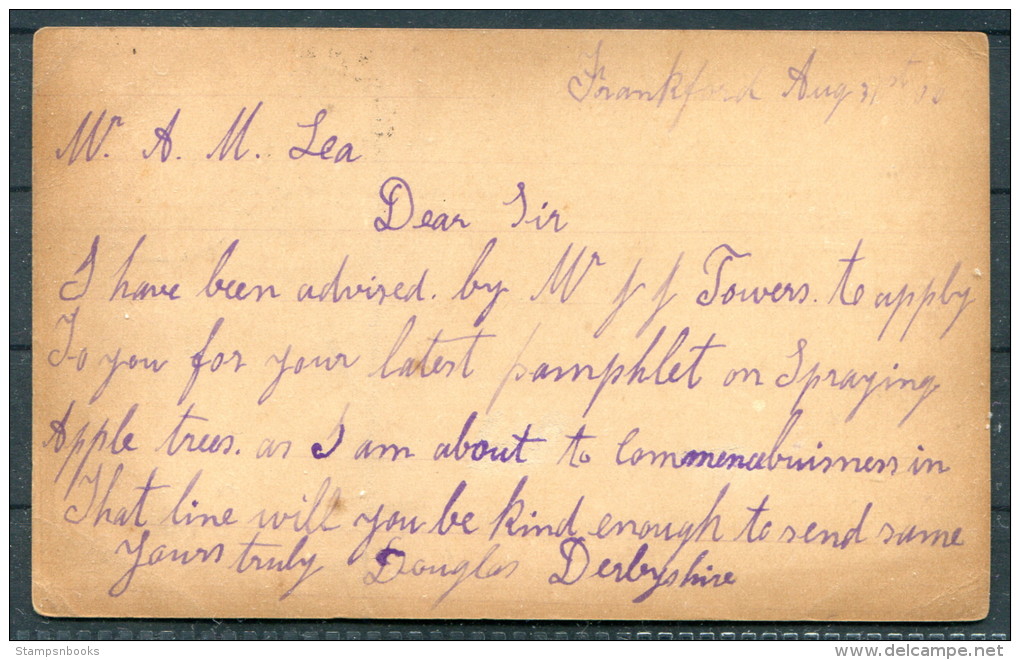 Frankford Aug 31st
Mr. A. M. Lea
Dear Sir
I have been advised. by Mr J J Towers. to apply
To you for your latest pamphlet on Spraying
Apple trees. as I am about to Commence buisness in
That line will you be kind enough to send same
Yours truly Douglas Derbyshire
Stampsnbooks
delcampe.net